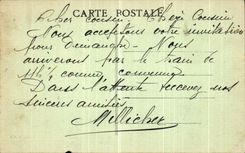 Cher Cousin, Chère Cousine
CARTE POSTALE
Nous acceptons votre invitation
pour dimanche. Nous
arriverons par le train de
11h, comme convenu
Dans l'attente recevez nos
sincères amitiés